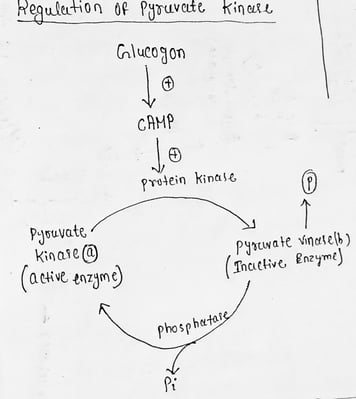 Regulation of Pyruvate Kinase
Glucogon
+
CAMP
+
Protein Kinase
P
Pyruvate
Kinase a
(active enzyme)
Pyruvate Vinase(b)
(Inactive Enzyme)
phosphatase
Pi